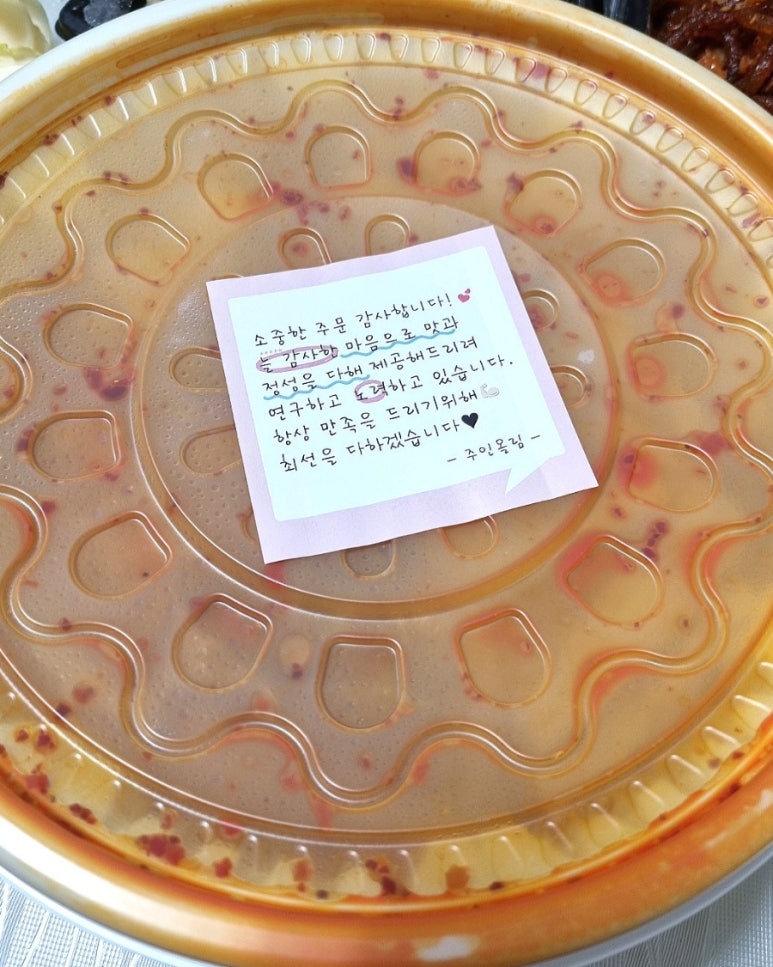 소중한 주문 감사합니다!💕
늘 감사한 마음으로 맛과
정성을 다해 제공해드리려
연구하고 노력하고 있습니다.
항상 만족을 드리기위해💪
최선을 다하겠습니다🖤
- 주인올림 -